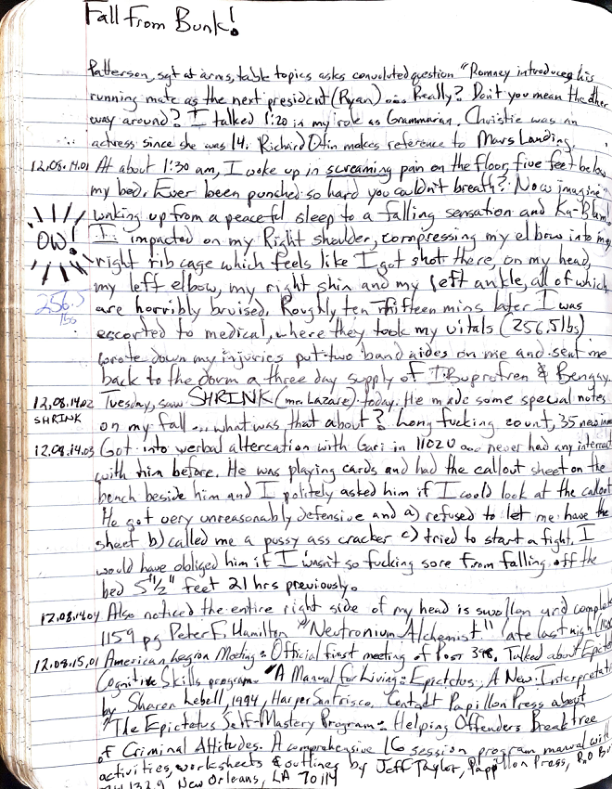 Fall From Bunk!
Patterson, sgt at arms, table topics asks convoluted question "Romney introduces his
running mate as the next president (Ryan) ... Really? Don't you mean the other
way around? I talked 1:20 in my role as Grammarian. Christie was an
actress since she was 14. Richard makes reference to Mars Landing.
12.08.14.01 At about 1:30 am, I woke up in screaming pain on the floor, five feet below
my bed. Ever been punched so hard you couldn't breath? Now imagine
waking up from a peaceful sleep to a falling sensation and Ka-Blam
OW! I impacted on my Right shoulder, compressing my elbow into my
right rib cage which feels like I got shot there, on my head,
my left elbow, my right shin and my left ankle, all of which
256.5 lbs are horribly bruised. Roughly ten - fifteen mins later I was
escorted to medical, where they took my vitals (256.5 lbs)
wrote down my injuries put two band aides on me and sent me
back to the dorm a three day supply of Ibuprofren & Bengay.
12.08.14.02 Tuesday, saw SHRINK (mr. Lazare) today. He made some special notes
SHRINK on my fall... what was that about? Long fucking count, 35 new
12.08.14.03 Got into verbal altercation with Gari in 11020 ... never had any
with him before. He was playing cards and had the callout sheet on the
bench beside him and I politely asked him if I could look at the callout
He got very unreasonably defensive and a) refused to let me have the
sheet b) called me a pussy ass cracker c) tried to start a fight. I
would have obliged him if I wasn't so fucking sore from falling off the
bed 5 "½" feet 21 hrs previously.
12.08.14.04 Also noticed the entire right side of my head is swollen and
1159 pg Peter F. Hamilton "Neutronium Alchemist" late last night
12.08.15.01 American Legion Meeting: Official first meeting of Post Talked about
Cognitive Skills program. "A Manual for Living: Epictetus, A New
by Sharon Lebell, 1994, Harper SanFrisco. Contact Papillon Press about
"The Epictetus Self-Mastery Program: Helping Offenders Break free
of Criminal Attitudes. A comprehensive 16 session program manual with
activities, worksheets & outlines by Jeff Traylor, Papillon Press, P.O
New Orleans, LA 70114